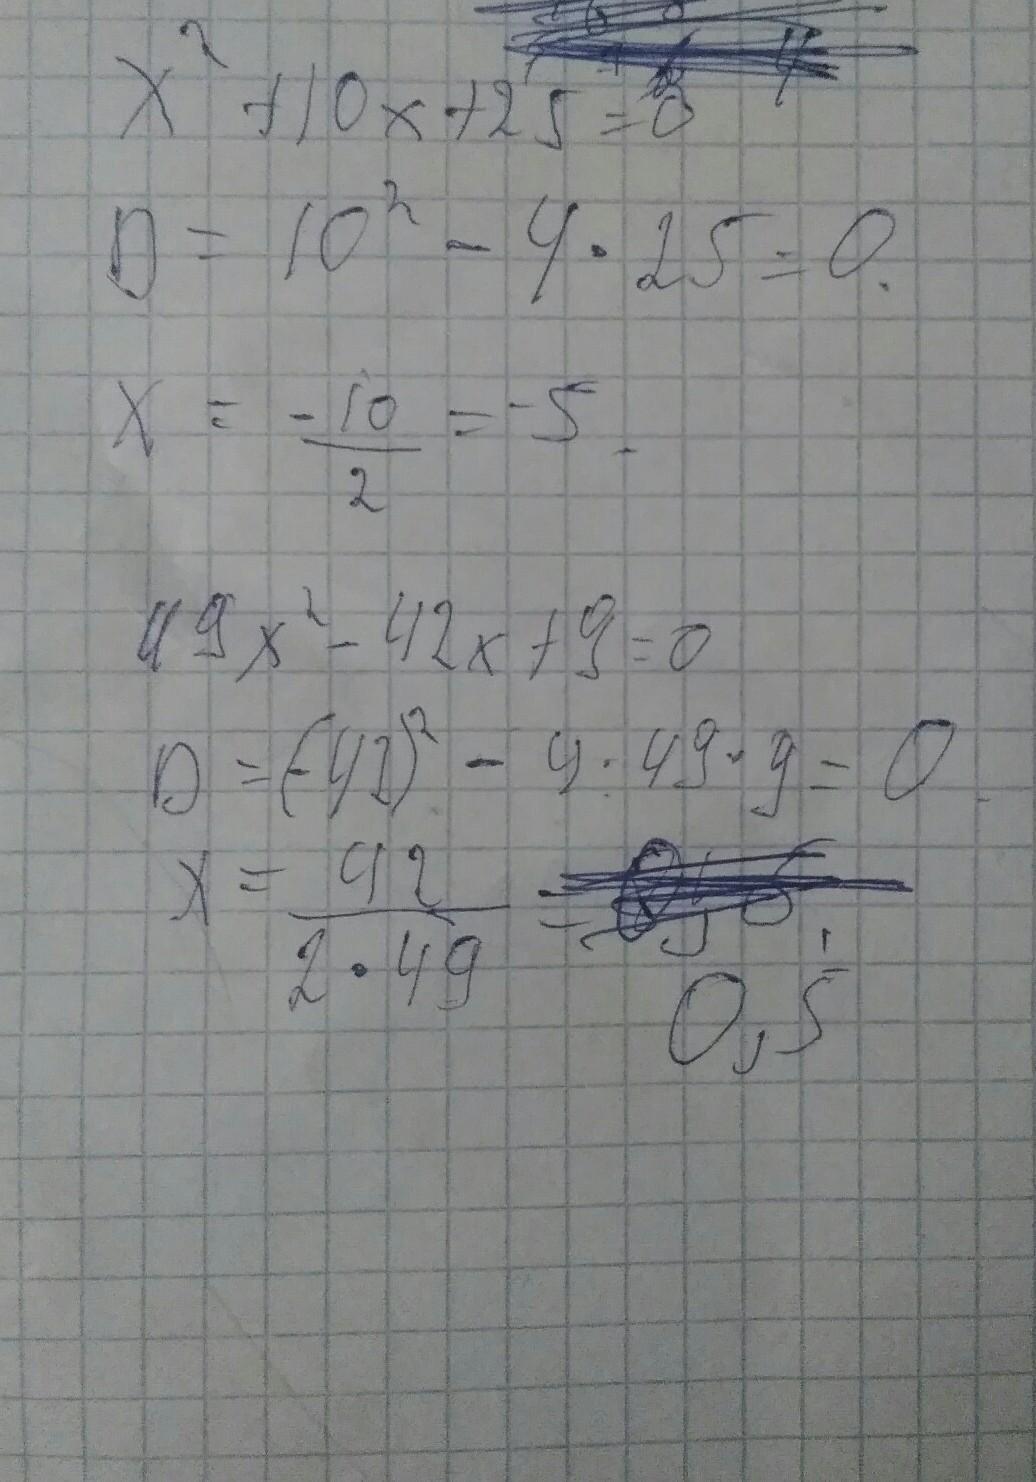 x² + 10x + 25 = 0
D = 10² - 4 · 25 = 0.
x = -10/2 = -5.
49x² - 42x + 9 = 0
D = (-42)² - 4 · 49 · 9 = 0
x = 42/2 · 49 =
0,5